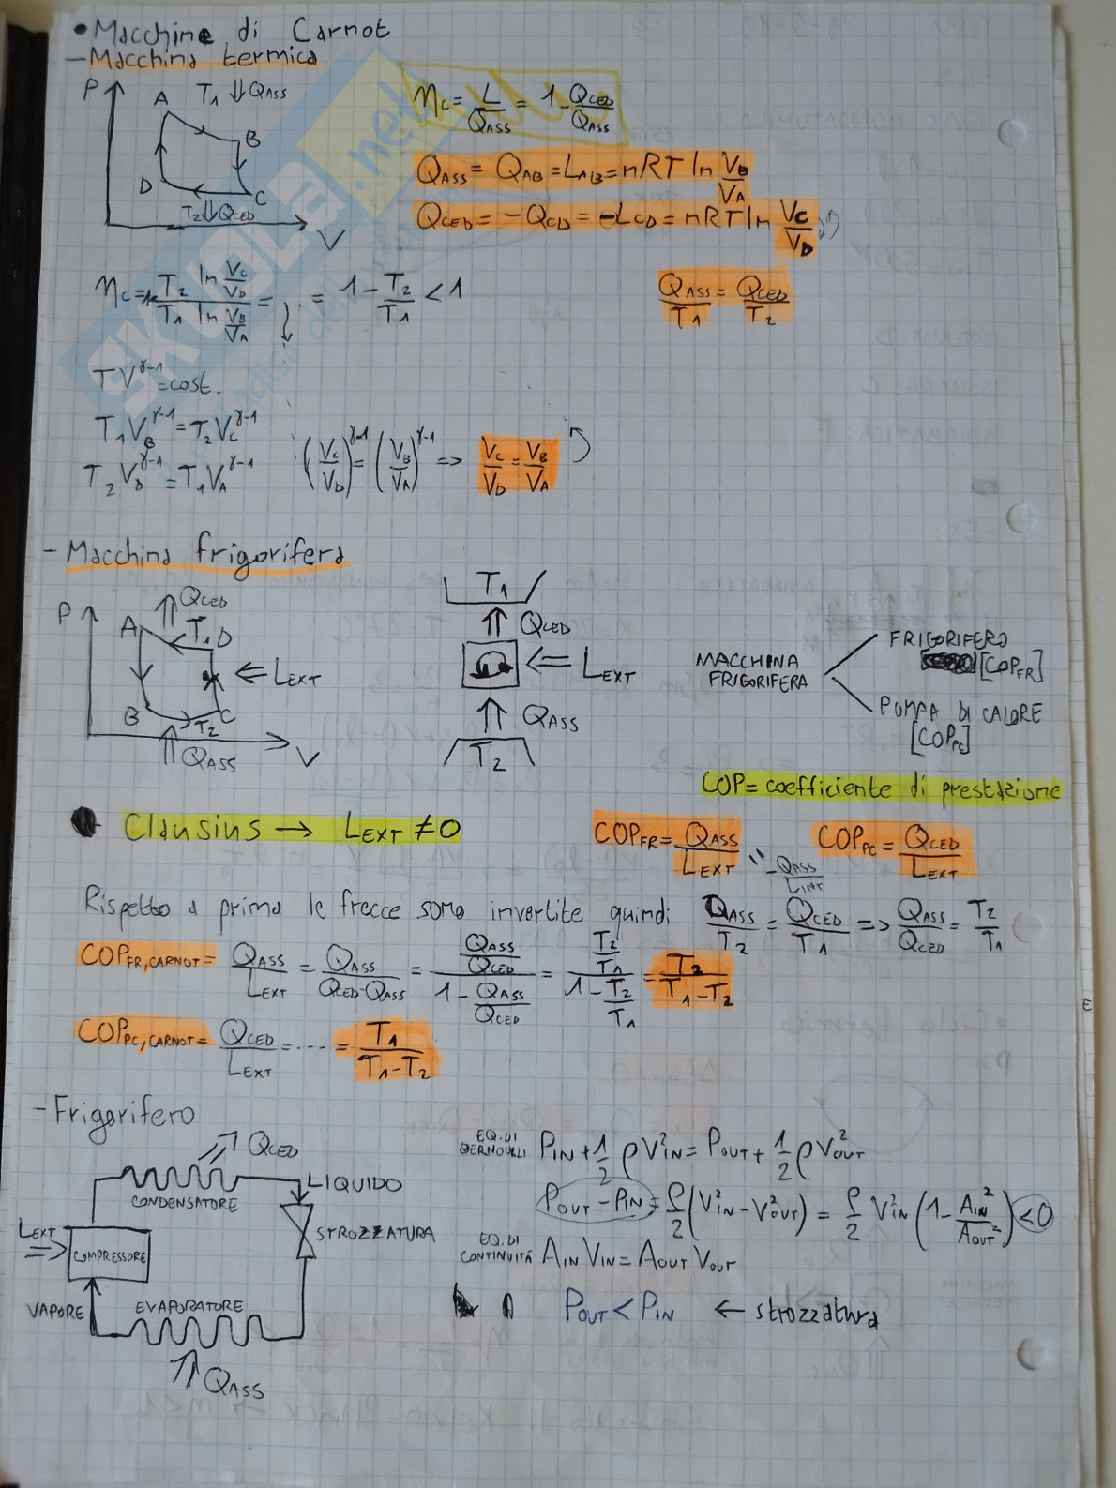 • Macchine di Carnot
- Macchina termica
P A T₁ ⇓ QASS
B
D
C
T₂ ⇓ QCED
V
ηC = L/QASS = 1 - QCED/QASS
QASS = QAB = LAB = nRT ln VB/VA
QCED = -QCD = -LCD = nRT ln VC/VD
ηC = 1 - T₂ ln VC/VD / T₁ ln VB/VA = = 1 - T₂/T₁ < 1
QASS/T₁ = QCED/T₂
TV^γ-1 = cost.
T₁VB^γ-1 = T₂VC^γ-1
T₂VD^γ-1 = T₁VA^γ-1
(VC/VD)^γ-1 = (VB/VA)^γ-1 => VC/VD = VB/VA
- Macchina frigorifera
P A QCED T₁ D
⇐ LEXT
B T₂ C
QASS V
T₁
⇑ QCED
⇐ LEXT
⇑ QASS
T₂
MACCHINA FRIGORIFERA
FRIGORIFERO [COPFR]
POMPA DI CALORE [COPPC]
COP = coefficiente di prestazione
• Clausius → LEXT ≠ 0
COPFR = QASS/LEXT
COPPC = QCED/LEXT
Rispetto a prima le frecce sono invertite quindi QASS/T₂ = QCED/T₁ => QASS/QCED = T₂/T₁
COPFR, CARNOT = QASS/LEXT = QASS/QCED-QASS = QASS/QCED / 1 - QASS/QCED = T₂/T₁ / 1 - T₂/T₁ = T₂/T₁-T₂
COPPC, CARNOT = QCED/LEXT = ···· = T₁/T₁-T₂
- Frigorifero
QCED
CONDENSATORE
LIQUIDO
STROZZATURA
LEXT
COMPRESSORE
VAPORE
EVAPORATORE
QASS
EQ. DI BERNOULLI PIN + 1/2 ρV²IN = POUT + 1/2 ρV²OUT
POUT - PIN = ρ/2 (V²IN - V²OUT) = ρ/2 V²IN (1 - AIN²/AOUT²) < 0
EQ. DI CONTINUITÀ AIN VIN = AOUT VOUT
POUT < PIN ← strozzatura